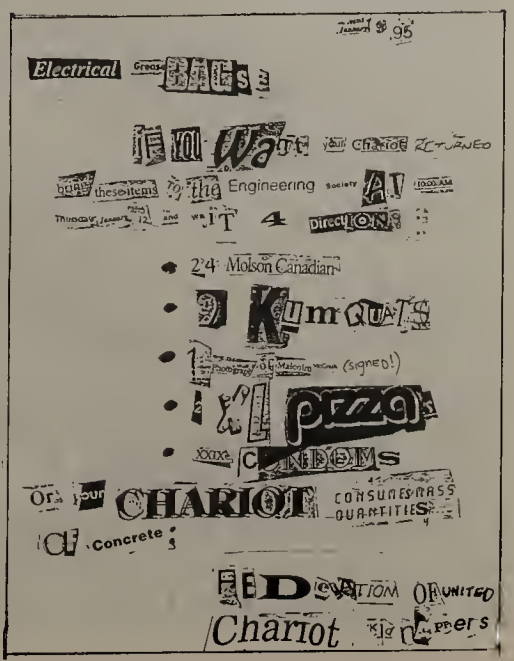 January 95
Electrical Grease BAGS
IF YOU WaNT your Chariot RETURNED
bring these items TO the Engineering Society AT 10:00 AM
Thursday January 12 and waIT 4 DirectIONS
• 24 Molson Canadian
• 9 KumQUATS
• 1 Photograph of Malcolm (SIGNED!)
• XL pizza
• XXIX CONDOMS
Or your CHARIOT CONSUMES MASS QUANTITIES
OF Concrete
FEDERATION OF UNITED
Chariot KidnAPPers